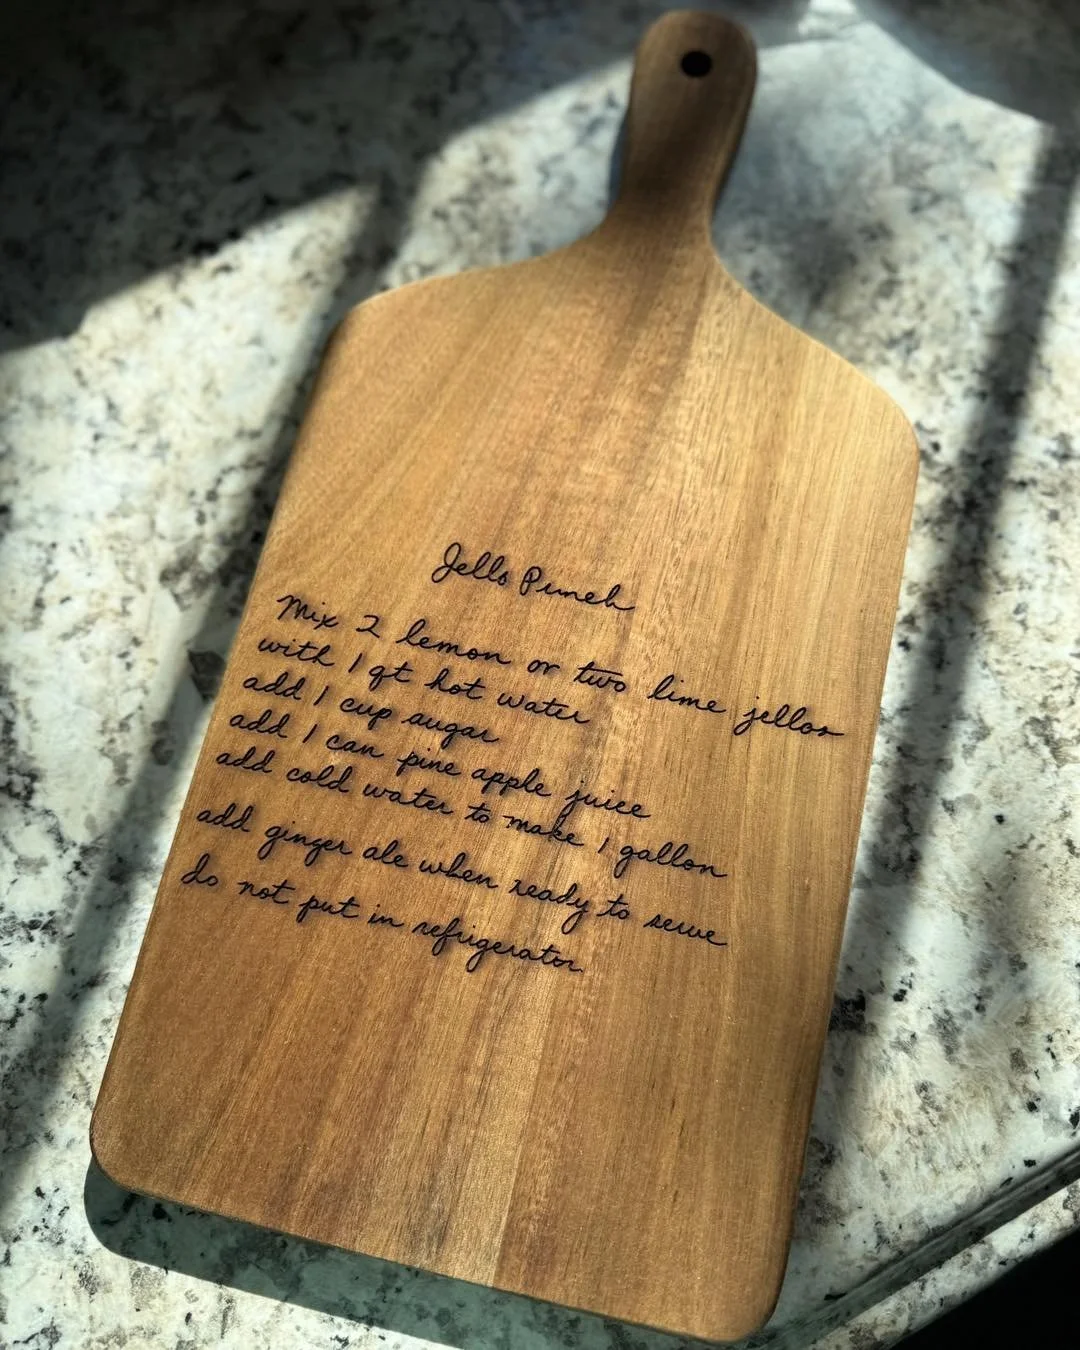 Jello Punch
Mix 2 lemon or two lime jellos
with 1 qt hot water
add 1 cup sugar
add 1 can pine apple juice
add cold water to make 1 gallon
add ginger ale when ready to serve
do not put in refrigerator.